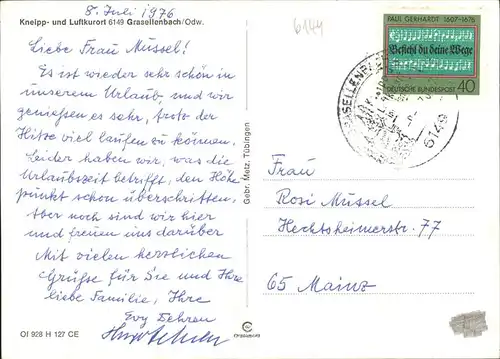 8. Juli 1976
Kneipp- und Luftkurort 6149 Grasellenbach/Odw.
Liebe Frau Müssel!
Es ist wieder sehr schön in
unserem Urlaub, und wir
genießen es sehr, trotz der
Hitze viel laufen zu können.
Leider haben wir, was die
Urlaubszeit betrifft, den Höhe-
punkt schon überschritten,
Aber noch sind wir hier
und freuen uns darüber
Mit vielen herzlichen
Grüßen für Sie und Ihre
liebe Familie, Ihre
Evy
OI 928 H 127 CE
Gebr. Metz, Tübingen
6149
PAUL GERHARDT 1607-1676
Befiehl du deine Wege
DEUTSCHE BUNDESPOST 40
6149
Frau
Rosi Müssel
Hechtsheimerstr. 77
65 Mainz